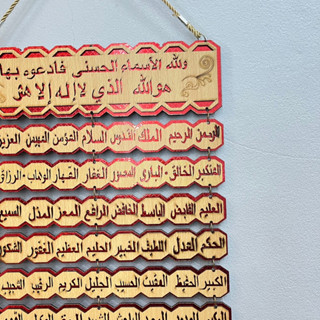 ولله الأسماء الحسنى فادعوه بها
هو الله الذي لا إله إلا هو
الرحمن الرحيم الملك القدوس السلام المؤمن المهيمن العزيز
المتكبر الخالق البارئ المصور الغفار القهار الوهاب الرزاق
العليم القابض الباسط الخافض الرافع المعز المذل السميع
الحكم العدل اللطيف الخبير الحليم العظيم الغفور الشكور
الكبير الحفيظ المقيت الحسيب الجليل الكريم الرقيب المجيب